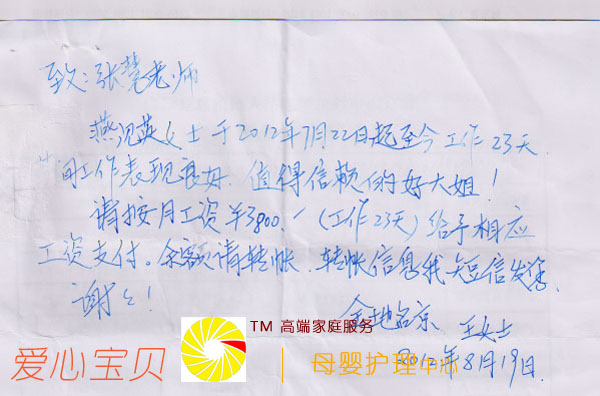 致:张慧老师
燕汉英女士于2012年7月22日起至今工作23天.
间工作表现很好.值得信赖的好大姐!
请按月工资¥3800.-(工作23天)给予相应
工资支付。余额请转帐.转帐信息我短信发您.
谢谢!
金地名京.王女士
2012年8月19日.
TM 高端家庭服务
爱心宝贝
母婴护理中心